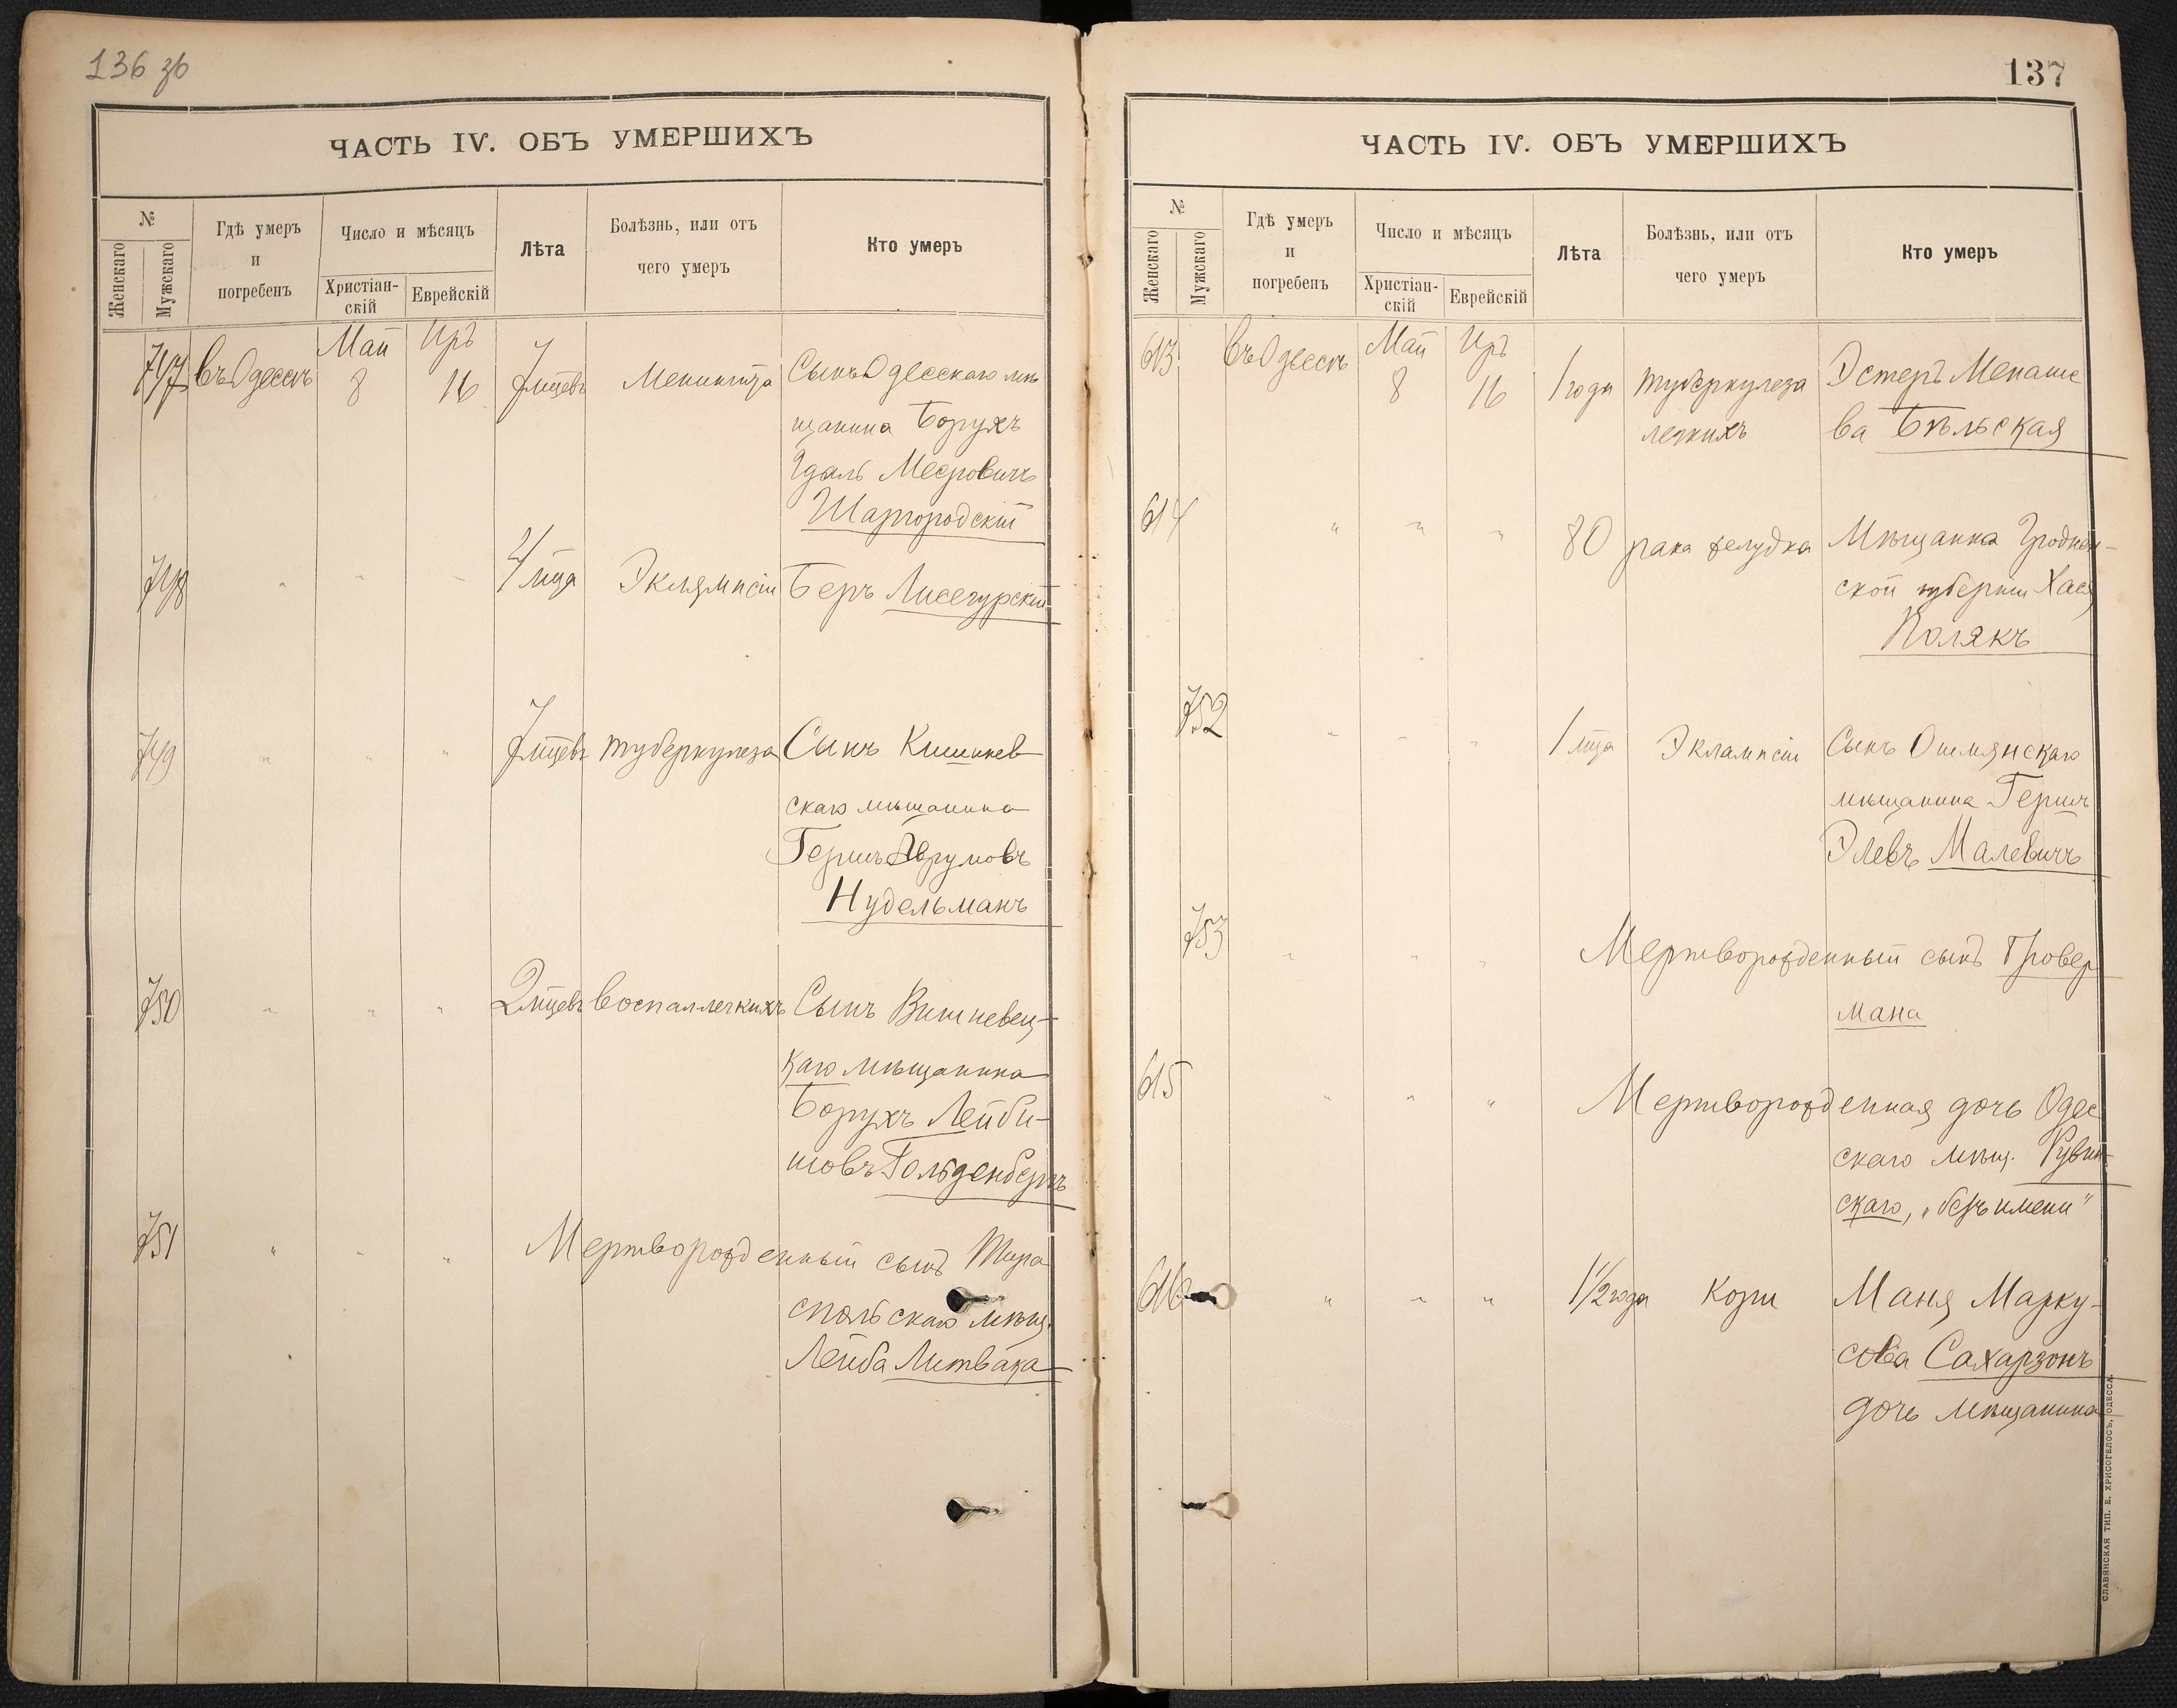 136 зв
ЧАСТЬ IV. ОБЪ УМЕРШИХЪ
№
Женскаго
Мужскаго
Гдѣ умеръ
и
погребенъ
Число и мѣсяцъ
Христіан-
скій
Еврейскій
Лѣта
Болѣзнь, или отъ
чего умеръ
Кто умеръ
Май Иръ
747 въ Одессѣ 8 16 7 мцевъ Менингита Сынъ Одесскаго мѣ
щанина Борухъ
Идаль Мееровичъ
Шаргородскій
748 " " " 4 мца Эклямпсіи Беръ Лисегурскій
749 " " " 7 мцевъ туберкулеза Сынъ Кишинев
скаго мѣщанина
Гершъ Аврумовъ
Нудельманъ
750 " " " 2 мцевъ воспал легкихъ Сынъ Вишневец-
каго мѣщанина
Борухъ Лейби-
шовъ Гольденбергъ
751 " " " Мертворожденный сынъ Тира
спольскаго мѣщ.
Лейба Литвака
137
ЧАСТЬ IV. ОБЪ УМЕРШИХЪ
№
Женскаго
Мужскаго
Гдѣ умеръ
и
погребенъ
Число и мѣсяцъ
Христіан-
скій
Еврейскій
Лѣта
Болѣзнь, или отъ
чего умеръ
Кто умеръ
Май Иръ
613 въ Одессѣ 8 16 1 года туберкулеза Эстеръ Менаше
легкихъ ва Бѣльская
614 " " " 80 рака желудка Мѣщанка Гроднен-
ской губерніи Хася
Полякъ
752 " " " 1 мца Экламисіи Сынъ Ошмянскаго
мѣщанина Гершъ
Элевъ Малевичъ
753 " " " Мертворожденный сынъ Гровер
мана
615 " " " Мертворожденная дочь Одес
скаго мѣщ. Рувин-
скаго, „безъ имени"
616 " " " 1 1/2 года Кори Маня Марку-
сова Сахарзонъ
дочь мѣщанина
СЛАВЯНСКАЯ ТИП. Е. ХРИСОГЕЛОСЪ, ОДЕССА.